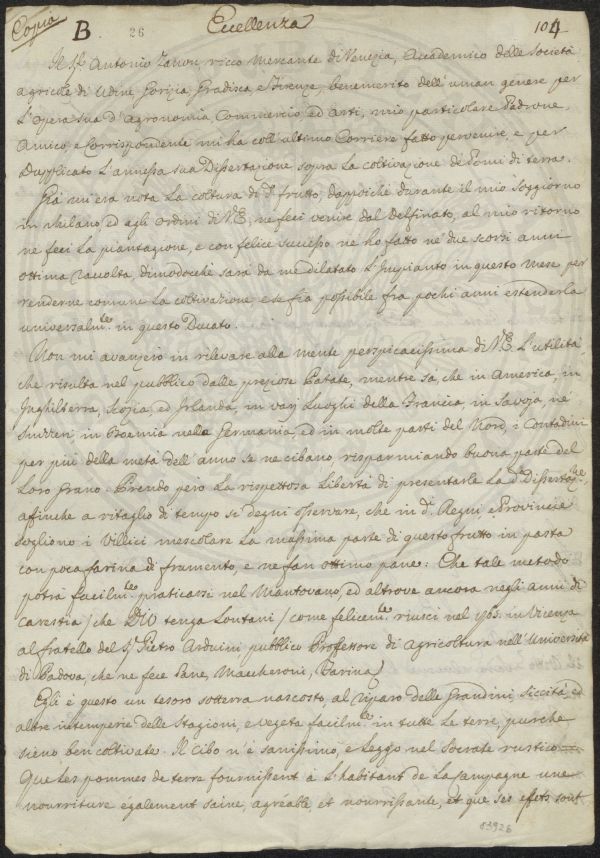 Copia B. 26 Eccellenza 104
Il Sr. Antonio Zanon ricco Mercante di Venezia, Accademico delle Società
agricole di Udine Gorizia Gradisca, e Firenze, benemerito dell'uman genere per
L'opera sua d'Agronomia Commercio, ed Arti, mio particolare Padrone,
Amico, e Corrispondente mi ha coll'ultimo Corriere fatto pervenire, e per
Dupplicato L'annessa sua Dissertazione sopra la coltivazione de Pomi di terra.
Già mi era nota la coltura di do. frutto, dappoiche durante il mio soggiorno
in Milano, ed agli ordini di V.E. ne feci venire dal Delfinato, al mio ritorno
ne feci la piantagione, e con felice successo ne ho fatto ne' due scorsi anni
ottima raccolta, dimodochè sarà da me dilatato L'impianto in questo Mese per
renderne comune la coltivazione, e se fia possibile fra pochi anni estenderla
universalmte. in questo Ducato.
Non mi avanzerò in rilevare alla mente perspicacissima di V.E. L'utilità
che risulta nel pubblico dalle prepose Patate, mentre sà, che in America, in
Inghilterra, Scozia, ed Irlanda, in varj Luoghi della Francia, in Savoja ne
Suizzeri, in Boemia nella Germania, ed in molte parti del Nord, i Contadini
per più della metà dell'anno se ne cibano, risparmiando buona parte del
Loro grano. Prendo però la rispettosa Libertà di presentarle La da. Dissertazne.
affinche a ritaglio di tempo si degni osservare, che in di. Regni, e Provincie
sogliono i Villici mescolare la massima parte di questo frutto in pasta
con poca farina di frumento, e ne fan ottimo pane: Che tale metodo
potrà facilmte. praticarsi nel Mantovano, ed altrove ancora negli anni di
carestia /che DIO tenga Lontani/ come felicemte. riuscì nel 1765. in Vicenza
al fratello del Sr. Pietro Arduini pubblico Professore di Agricoltura nell'Università
di Padova, che ne fece Pane, Maccheroni, Farina.
Egli è questo un tesoro sotterra nascosto, al riparo delle Grandini, siccità, ed
altre intemperie delle Stagioni, e vegeta facilmte. in tutte Le terre, purche
sieno ben coltivate. Il cibo n'è sanissimo, e Leggo nel Socrate rustico
Que Les pommes de terre fournissent à L'habitant de La campagne une
nourriture également saine, agréable, et nourrissante, et que ses effets sont
83926